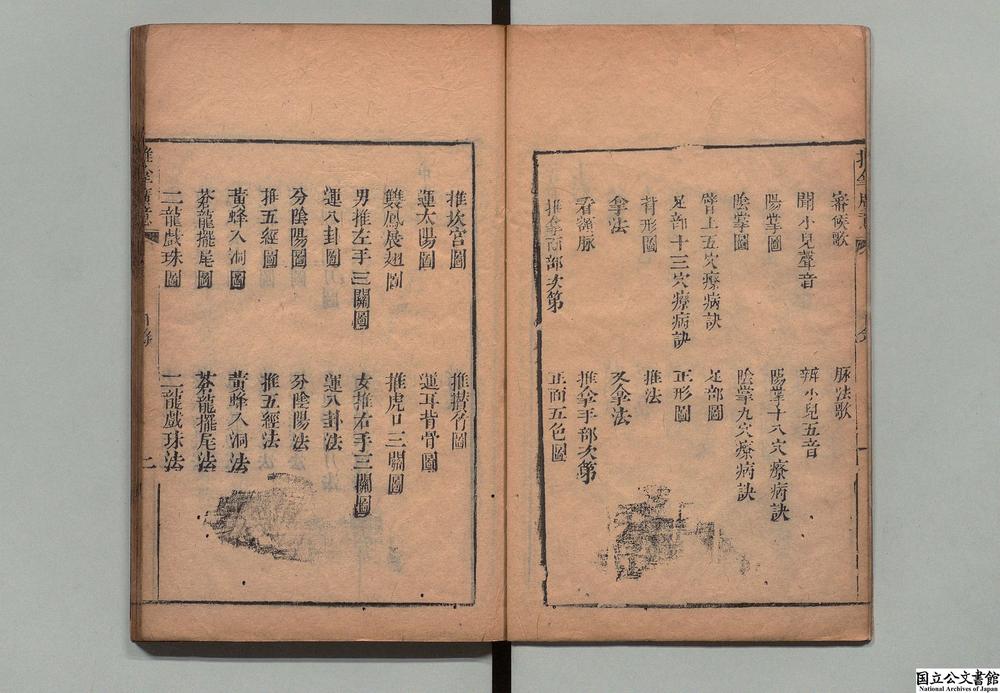 審候歌 脉法歌
聞小兒聲音 辨小兒五音
陽掌圖 陽掌十八穴療病訣
陰掌圖 陰掌九穴療病訣
臂上五穴療病訣 足部圖
足部十三穴療病訣 正形圖
背形圖 推法
拿法 又拿法
看額脉 推拿手部次第
推拿面部次第 正面五色圖
推坎宮圖 推攢竹圖
運太陽圖 運耳背骨圖
雙鳳展翅圖 推虎口三關圖
男推左手三關圖 女推右手三關圖
運八卦圖 運八卦法
分陰陽圖 分陰陽法
推五經圖 推五經法
黃蜂入洞圖 黃蜂入洞法
蒼龍擺尾圖 蒼龍擺尾法
二龍戲珠圖 二龍戲珠法
推拿廣意 二
国立公文書館
National Archives of Japan